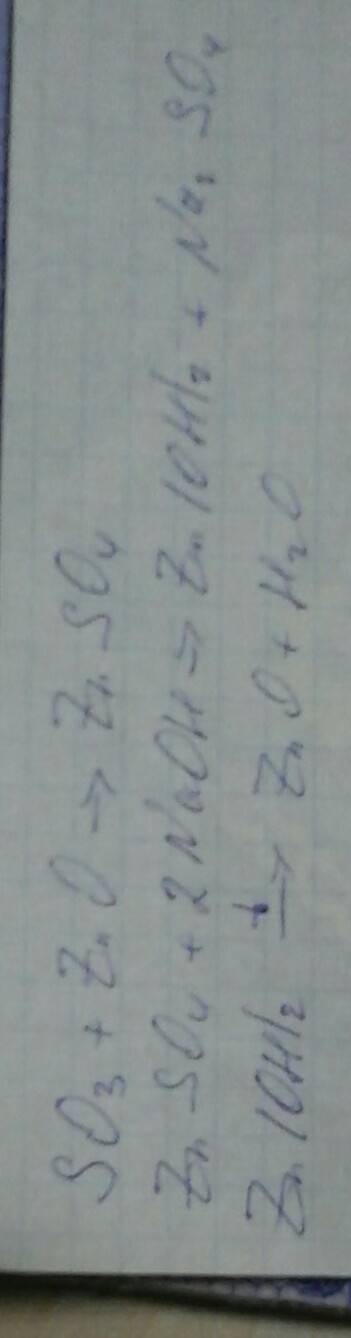 SO₃ + ZnO → ZnSO₄
ZnSO₄ + 2NaOH → Zn(OH)₂ + Na₂SO₄
Zn(OH)₂ →ᵗ ZnO + H₂O